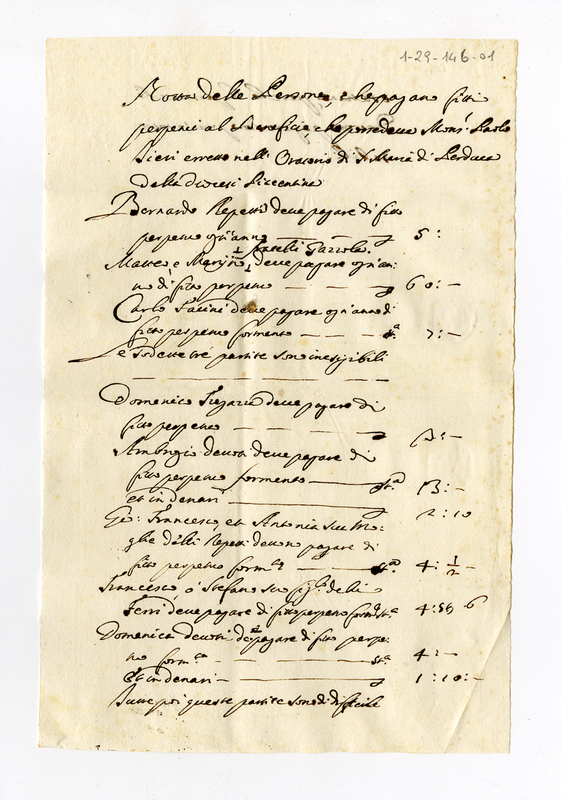 1-29-146-01
Notta delle Persone, che pagano fitti
perpetui al Beneficio, che possedeva Mons.r Paolo
Sieri eretto nell' Oratorio di S. Maria di Perduca
della Diocesi Piacentina
Bernardo Repetti deve pagare di fitto
perpetuo ogn'anno 5:
fratelli Gazzola
Matteo, e deve pagare ogn'an:
no di fitto perpetuo 60:-
Carlo deve pagare ogn'anno di
fitto perpetuo formento st.a 7:-
Le sodette tré partite sono inesigibili
Domenico deve pagare di
fitto perpetuo
Ambrogio deve pagare di
fitto perpetuo formento st.a 13:-
et in denari 2:10
Gio: Francesco, et Antonia sua Mo:
glie delli Repetti devono pagare di
fitto perpetuo form.o st.a 4:1/2-
Francesco, ó Stefano suo fig.lo delli
Ferri deve pagare di fitto perpetuo form.o st.a 4:
Domenica pagare di fitto perpe:
tuo form.to st.a 4:-
et in denari 1:10:-
Tutte poi queste partite sono di difficile